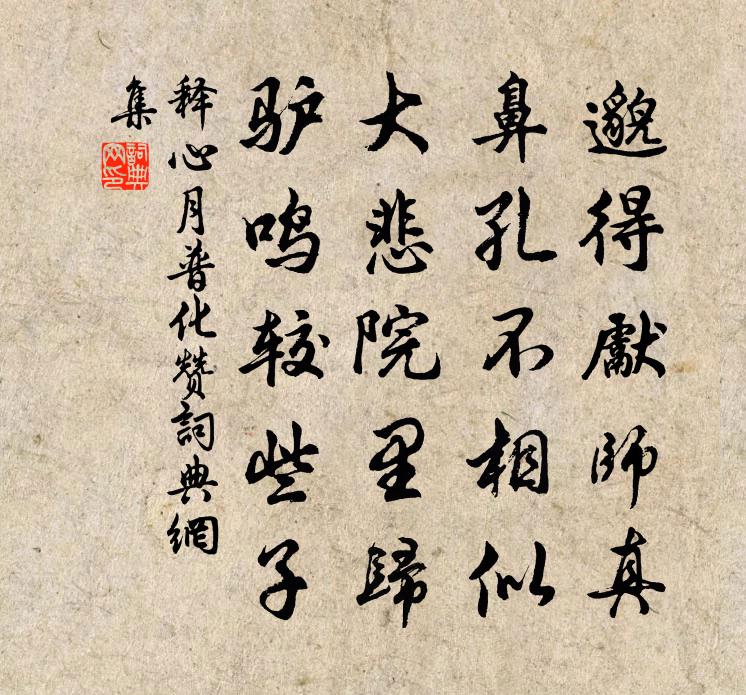 邈得獻师真
鼻孔不相似
大悲院里歸
驴鸣较些子
释心月普化赞詞典網
集
詞典
网印